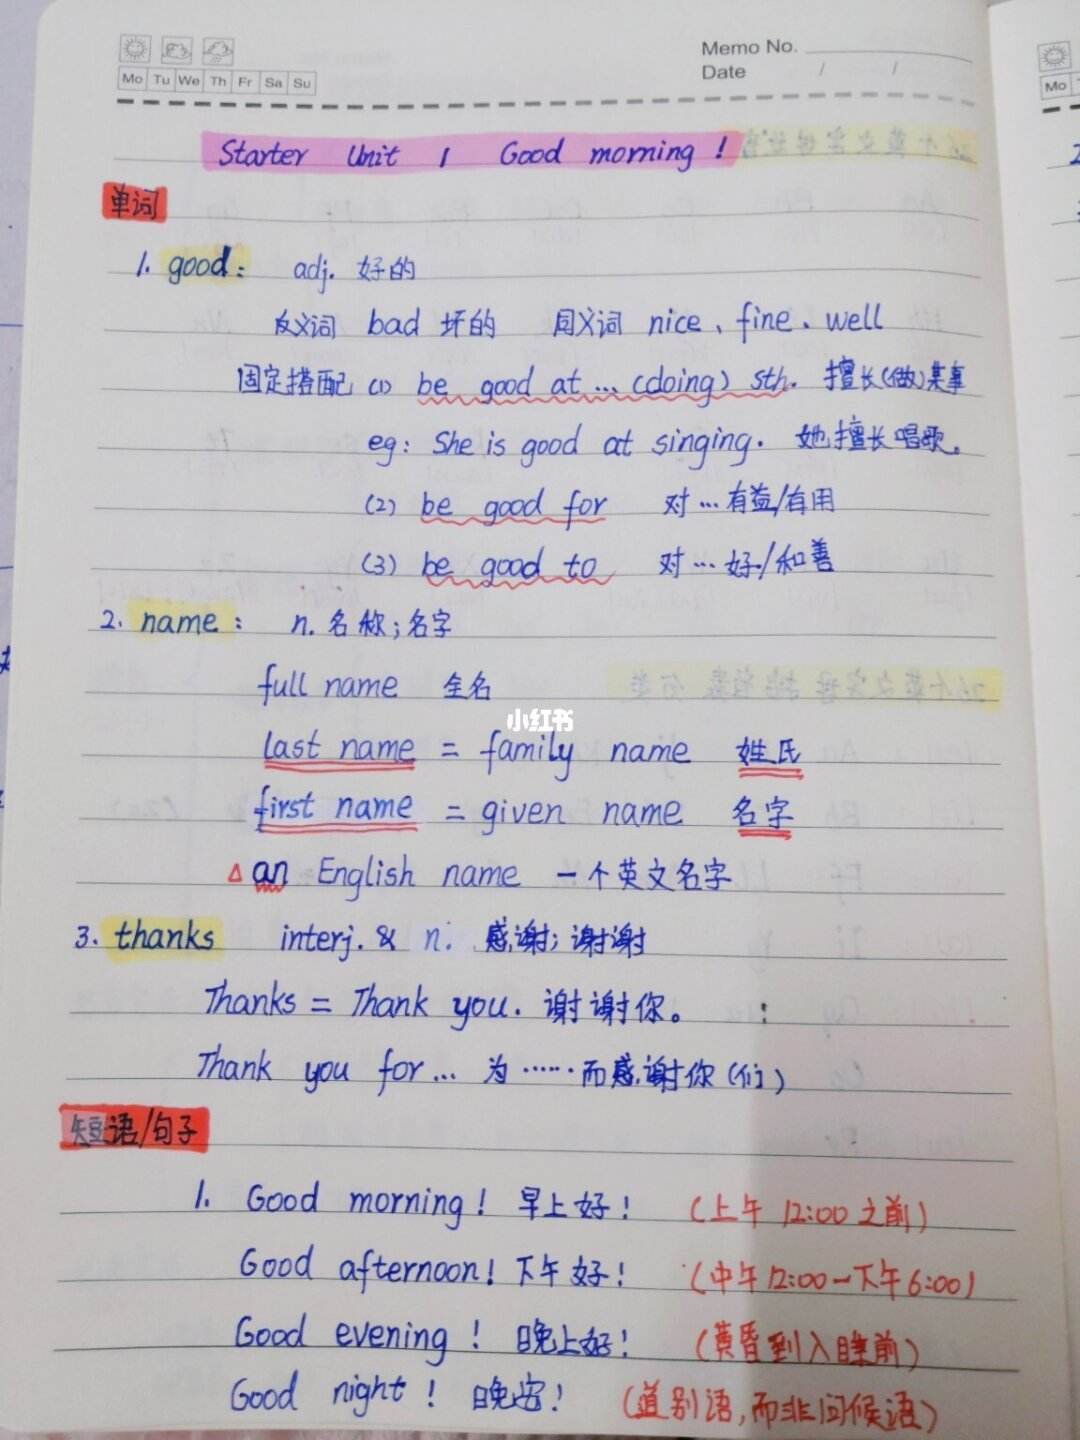 Memo No.
Mo Tu We Th Fr Sa Su
Date / /
Mo
Starter Unit 1 Good morning!
单词
1. good: adj. 好的
反义词 bad 坏的 同义词 nice、fine、well
固定搭配 (1) be good at...(doing) sth. 擅长(做)某事
eg: She is good at singing. 她擅长唱歌。
(2) be good for 对…有益/有用
(3) be good to 对…好/和善
2. name: n. 名称;名字
full name 全名
小红书
last name = family name 姓氏
first name = given name 名字
△ an English name 一个英文名字
3. thanks interj. & n. 感谢;谢谢
Thanks = Thank you. 谢谢你。
Thank you for... 为……而感谢你(们)
短语/句子
1. Good morning! 早上好! (上午 12:00之前)
Good afternoon! 下午好! (中午12:00—下午6:00)
Good evening! 晚上好! (黄昏到入睡前)
Good night! 晚安! (道别语,而非问候语)